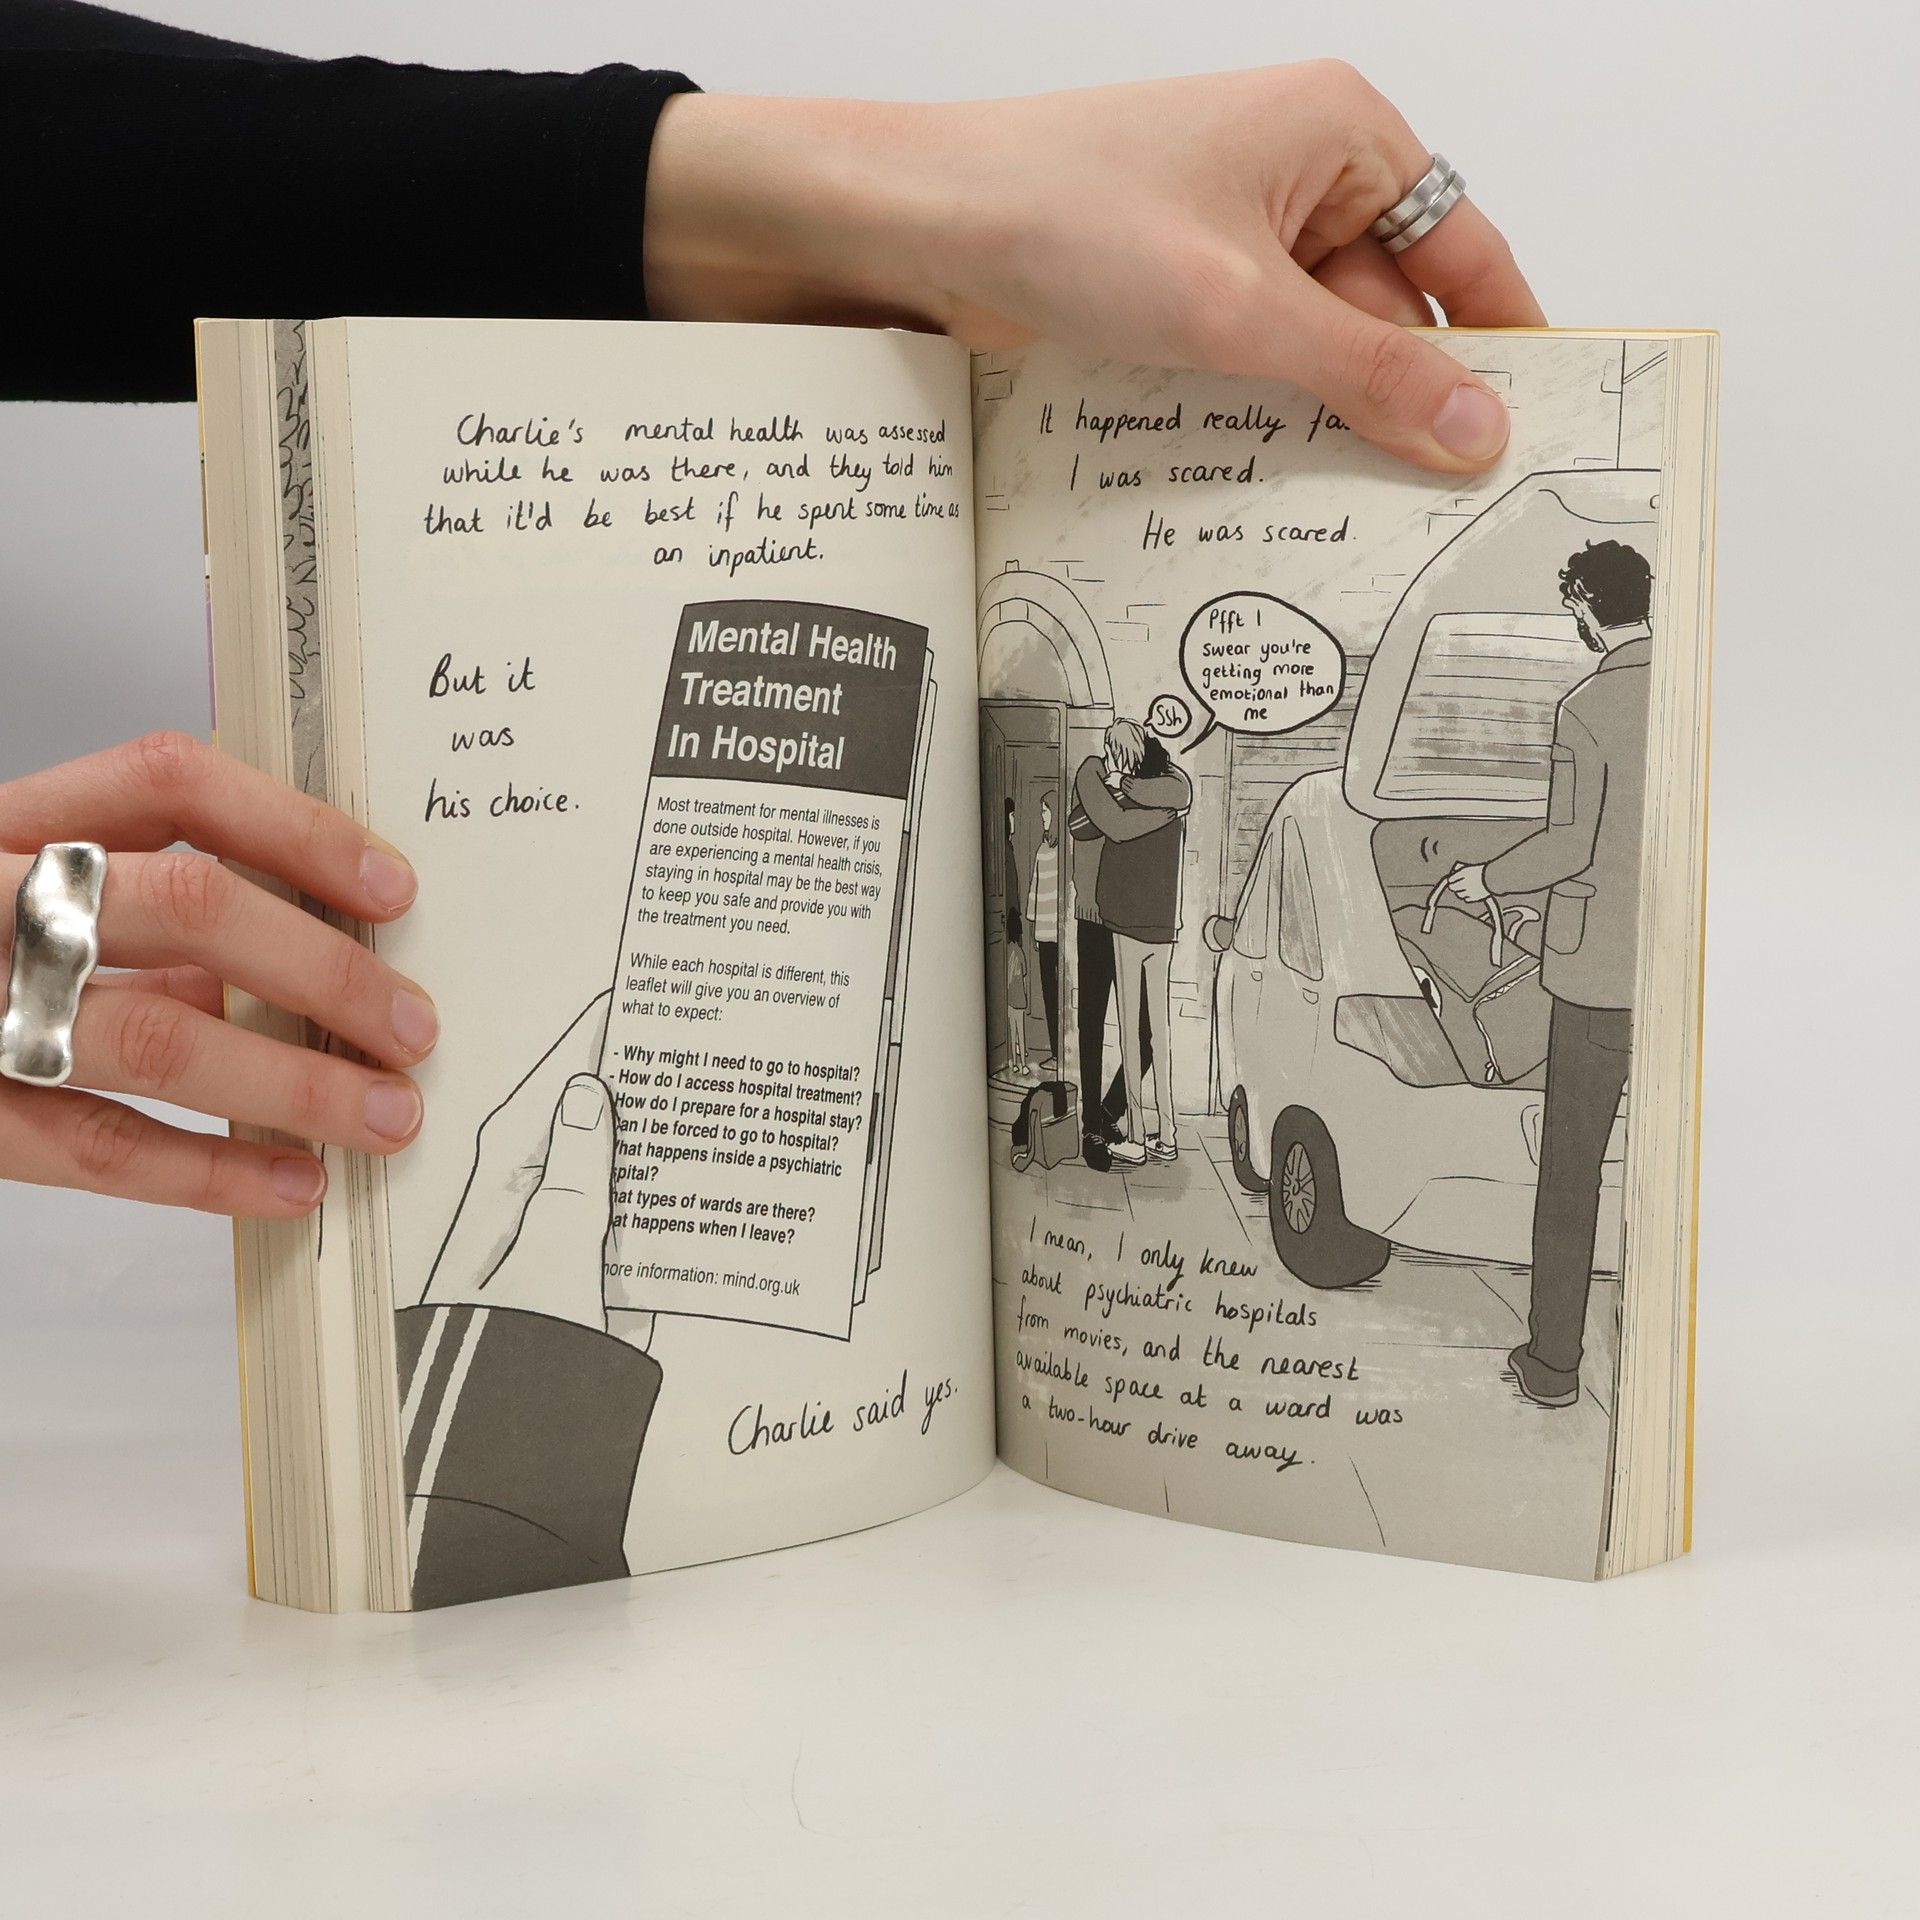 Charlie's mental health was assessed
while he was there, and they told him
that it'd be best if he spent some time as
an inpatient.
But it
was
his choice.
Mental Health
Treatment
In Hospital
Most treatment for mental illnesses is
done outside hospital. However, if you
are experiencing a mental health crisis,
staying in hospital may be the best way
to keep you safe and provide you with
the treatment you need.
While each hospital is different, this
leaflet will give you an overview of
what to expect:
- Why might I need to go to hospital?
- How do I access hospital treatment?
How do I prepare for a hospital stay?
an I be forced to go to hospital?
hat happens inside a psychiatric
spital?
hat types of wards are there?
at happens when I leave?
more information: mind.org.uk
Charlie said yes.
It happened really
I was scared.
He was scared.
Pfft I
swear you're
getting more
emotional than
me
Ssh
I mean, I only knew
about psychiatric hospitals
from movies, and the nearest
available space at a ward was
a two-hour drive away.